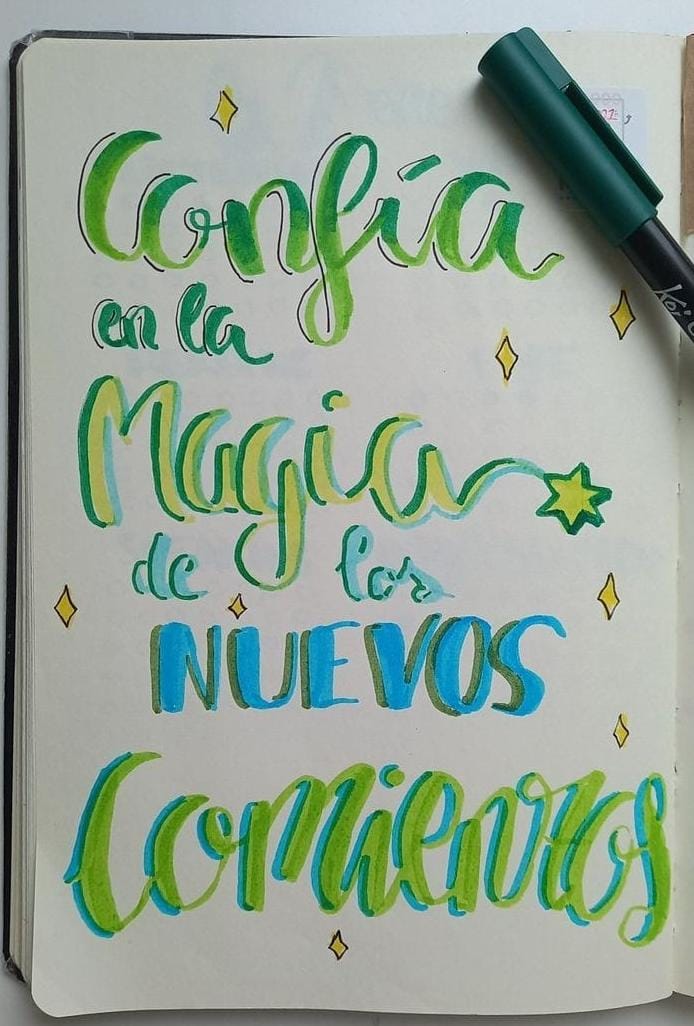 Confía
en la
Magia
de los
NUEVOS
Comienzos
Koi